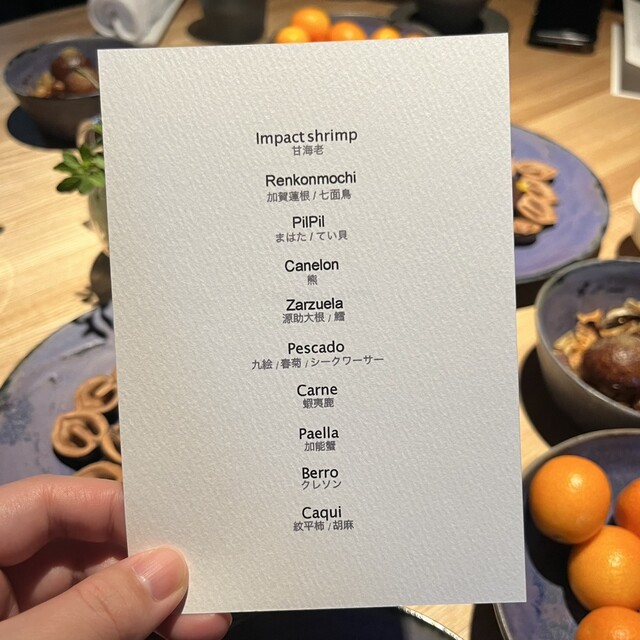 Impact shrimp
甘海老
Renkonmochi
加賀蓮根 / 七面鳥
PilPil
まはた / てい貝
Canelon
熊
Zarzuela
源助大根 / 鱈
Pescado
九絵 / 春菊 / シークワーサー
Carne
蝦夷鹿
Paella
加能蟹
Berro
クレソン
Caqui
紋平柿 / 胡麻